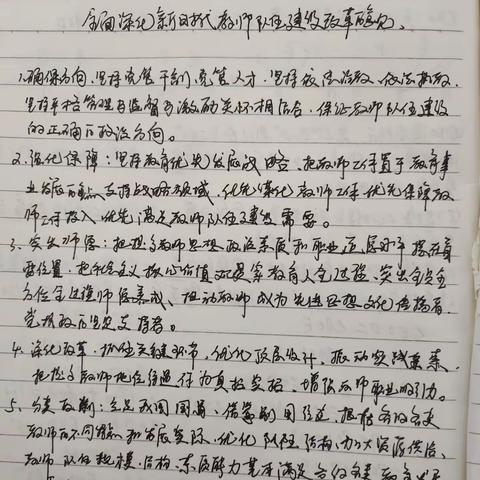 全面深化新时代教师队伍建设改革意见、
1.确保方向,坚持党管干部,党管人才,坚持依法治教、依法执教,
坚持严格管理监督与激励关怀相结合,保证教师队伍建设
的正确的政治方向。
2.强化保障:坚持教育优先发展战略,把教师工作置于教育事
业发展的重点支持战略领域,优先谋化教师工作,优先保障教
师工作投入,优先满足教师队伍建设需要。
3、突出师德:把提高教师思想政治素质和职业道德水平摆在首
要位置,把社会主义核心价值观贯穿教书育人全过程,突出全员全
方位全过程师德养成、推动教师成为先进思想文化传播者,
党执政的坚定支持者。
4、深化改革,抓住关键环节,优化顶层设计,推动实践探索,
把提高教师地位待遇作为真招实招,增强教师职业吸引力。
5、分类施策:立足我国国情,借鉴国际经验,根据各级各类
教师的不同特点和发展实际,优化队伍结构,加大资源供给,
教师队伍规模、结构、素质能力基本满足各级各类教育发展